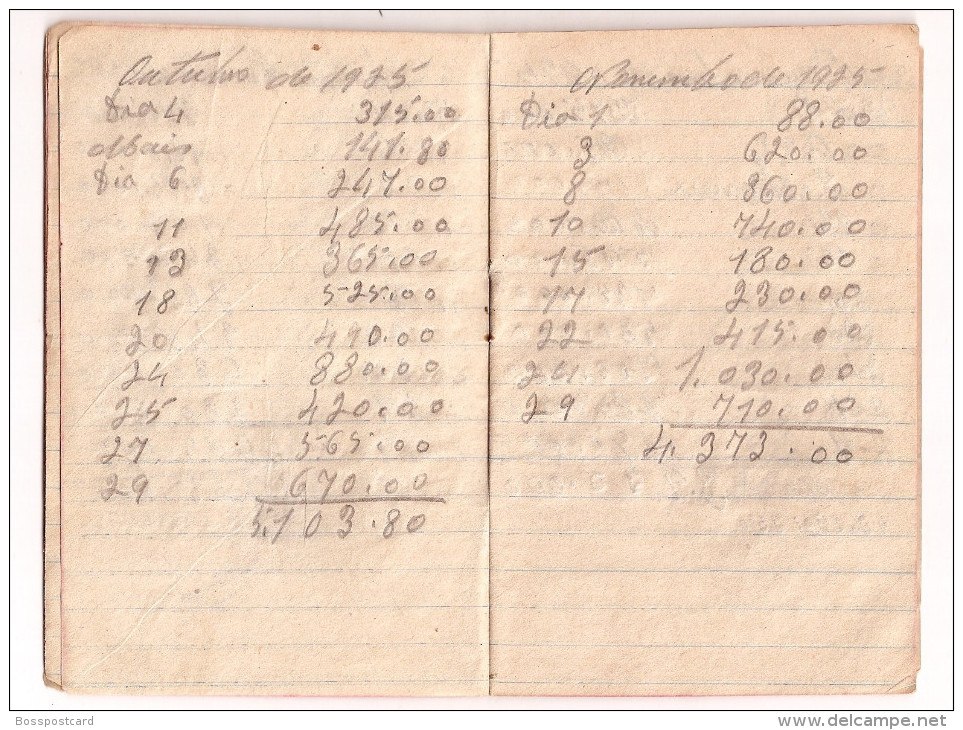 Outubro de 1925
Dia 4 315.00
Mais 141.80
Dia 6 247.00
11 485.00
13 365.00
18 525.00
20 490.00
24 880.00
25 420.00
27 565.00
29 670.00
5.103.80
Novembro de 1925
Dia 1 88.00
3 620.00
8 360.00
10 740.00
15 180.00
17 230.00
22 415.00
24 1.030.00
29 710.00
4.373.00
Bosspostcard
www.delcampe.net